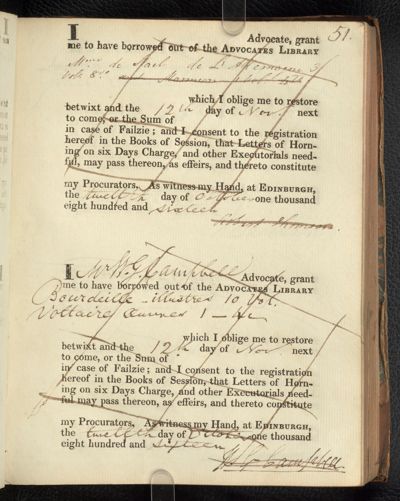 51.
I Advocate, grant
me to have borrowed out of the ADVOCATES LIBRARY
de Stael de L'Allemagne 3
vols 8vo
which I oblige me to restore
betwixt and the 12th day of Novr. next
to come, or the Sum of
in case of Failzie; and I consent to the registration
hereof in the Books of Session, that Letters of Horn-
ing on six Days Charge, and other Executorials need-
ful, may pass thereon, as effeirs, and thereto constitute
my Procurators, As witness my Hand, at EDINBURGH,
the twelfth day of October one thousand
eight hundred and sixteen
I Mr W. G. Campbell Advocate, grant
me to have borrowed out of the ADVOCATES LIBRARY
Bourdeille - illustres 10 vol.
Voltaire Œuvres 1 -
which I oblige me to restore
betwixt and the 12th day of Nov. next
to come, or the Sum of
in case of Failzie; and I consent to the registration
hereof in the Books of Session, that Letters of Horn-
ing on six Days Charge, and other Executorials need-
ful may pass thereon, as effeirs, and thereto constitute
my Procurators, As witness my Hand, at EDINBURGH,
the twelfth day of October one thousand
eight hundred and sixteen
W G Campbell